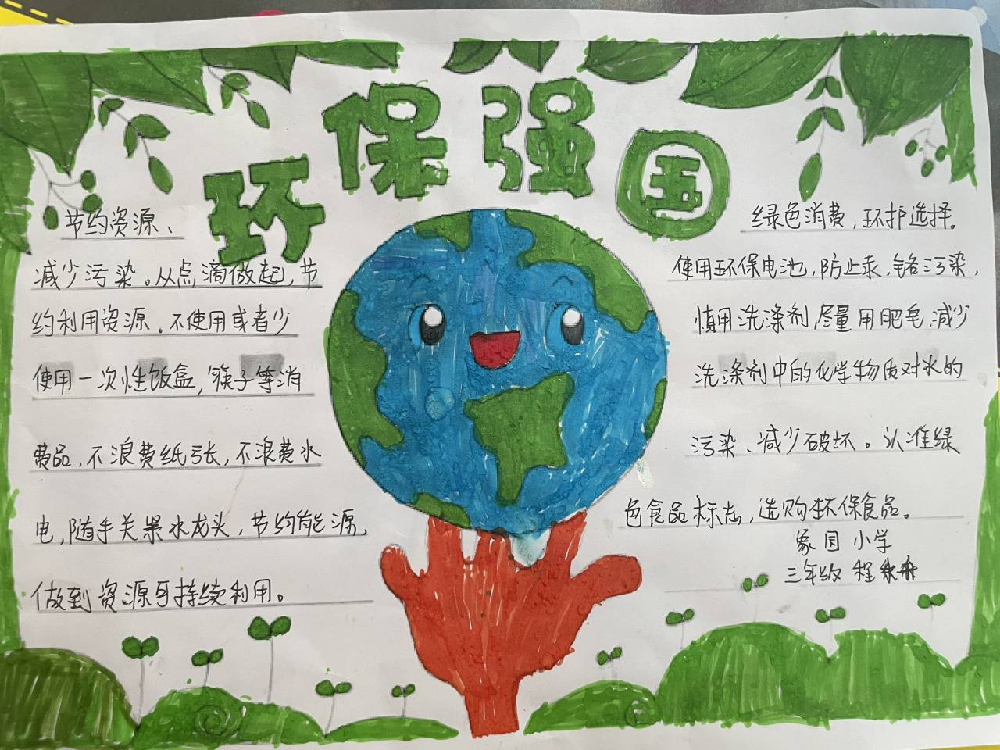 环保强国
节约资源、
减少污染。从点滴做起,节
约利用资源。不使用或者少
使用一次性饭盒,筷子等消
费品,不浪费纸张,不浪费水
电,随手关水龙头,节约能源,
做到资源可持续利用。
绿色消费,环护选择。
使用环保电池,防止汞,铬污染,
慎用洗涤剂,尽量用肥皂,减少
洗涤剂中的化学物质对水的
污染、减少破坏。认准绿
色食品标志,选购环保食品。
小学
三年级 程